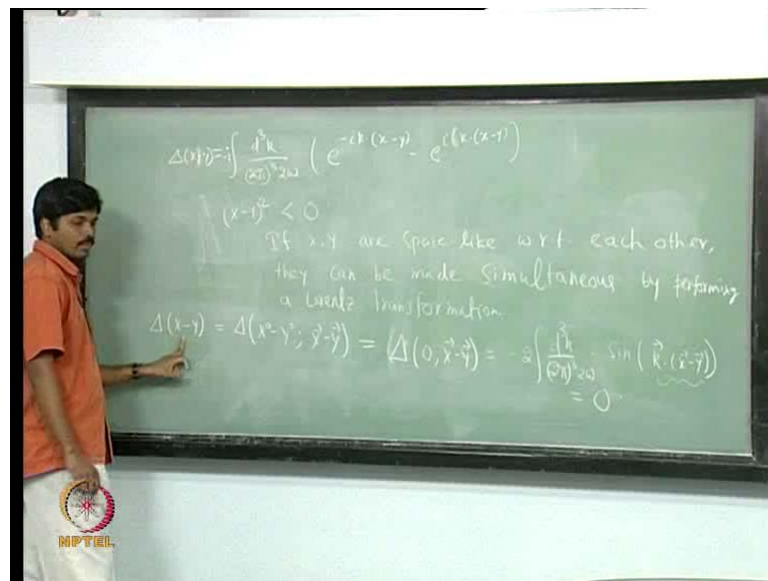 Δ(x-y) = -i ∫ d³k / (2π)³2ω ( e^{-ik·(x-y)} - e^{i(k·(x-y)} )
(x-y)² < 0
If x,y are space-like w.r.t. each other,
they can be made simultaneous by performing
a Lorentz transformation.
Δ(x-y) = Δ(x⁰-y⁰; x⃗-y⃗) = Δ(0, x⃗-y⃗) = -2 ∫ d³k / (2π)³2ω sin(k⃗·(x⃗-y⃗))
= 0
NPTEL